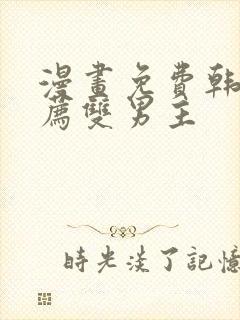 漫畫免費韩
薦雙男主
時光淡了記憶